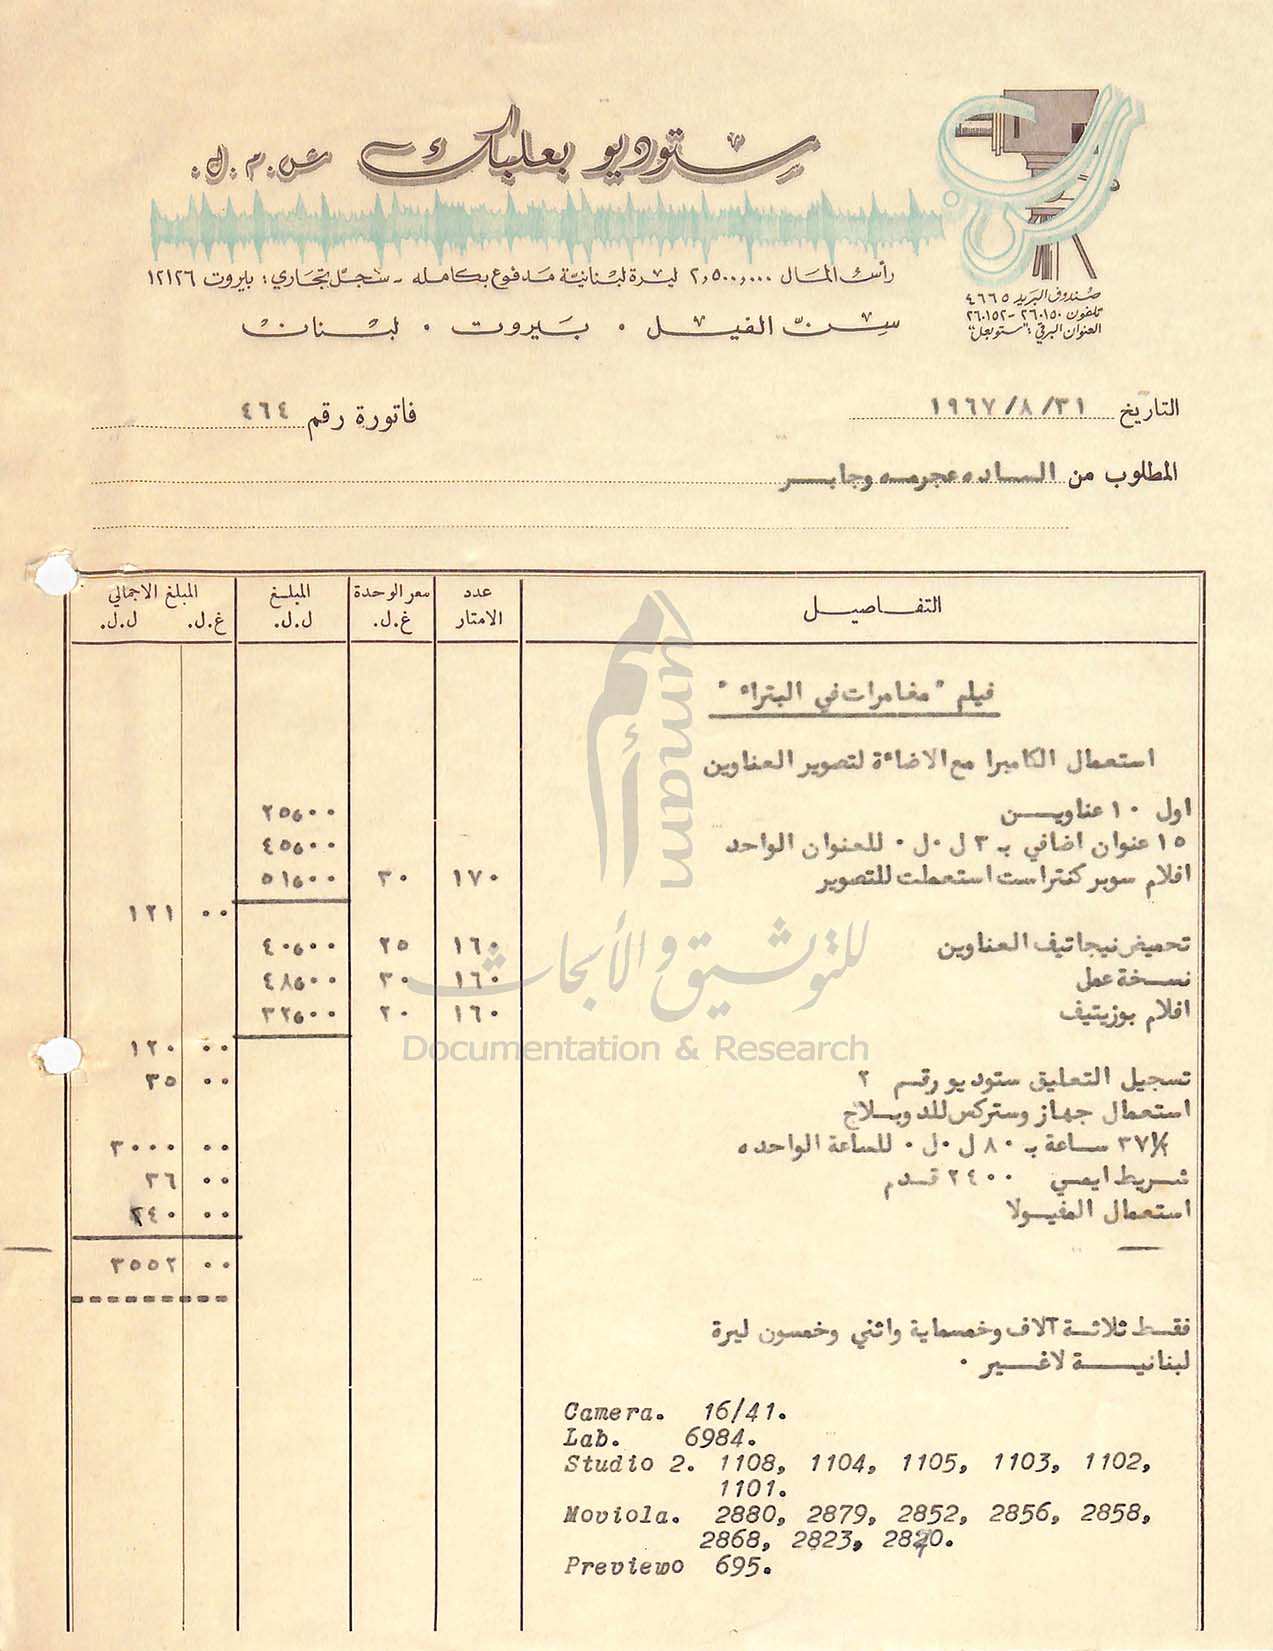 ستوديو بعلبك ش.م.ل.
رأس المال ٢,٥٠٠,٠٠٠ ليرة لبنانية مدفوع بكامله - سجل تجاري: بيروت ١٢١٢٦
سن الفيل . بيروت . لبنان
صندوق البريد ٤٦٦٥
تلفون ٢٦٠١٥٠ - ٢٦٠١٥٢
العنوان البرقي: "ستوبعل"
التاريخ ٣١ /٨ /١٩٦٧
فاتورة رقم ٤٦٤
المطلوب من الساده عجرمه وجابر
التفاصيل عدد الامتار سعر الوحدة غ.ل. المبلغ ل.ل. المبلغ الاجمالي غ.ل. ل.ل.
فيلم "مغامرات في البتراء"
استعمال الكاميرا مع الاضاءة لتصوير العناوين
اول ١٠ عناوين ٢٥،٠٠
١٥ عنوان اضافي بـ ٣ ل.ل. للعنوان الواحد ٤٥،٠٠
افلام سوبر كنتراست استعملت للتصوير ١٧٠ ٣٠ ٥١،٠٠
٠٠ ١٢١
تحميض نيجاتيف العناوين ١٦٠ ٢٥ ٤٠،٠٠
نسخة عمل ١٦٠ ٣٠ ٤٨،٠٠
افلام بوزيتيف ١٦٠ ٢٠ ٣٢،٠٠
٠٠ ١٢٠
تسجيل التعليق ستوديو رقم ٢ ٠٠ ٣٥
استعمال جهاز وستركس للدوبلاج
٣٧½ ساعة بـ ٨٠ ل.ل. للساعة الواحده ٠٠ ٣٠٠٠
شريط ايمي ٢٤٠٠ قدم ٠٠ ٣٦
استعمال المفيولا ٠٠ ٢٤٠
٠٠ ٣٥٥٢
فقط ثلاثة آلاف وخمسماية واثني وخمسون ليرة
لبنانية لاغير .
Camera. 16/41.
Lab. 6984.
Studio 2. 1108, 1104, 1105, 1103, 1102,
1101.
Moviola. 2880, 2879, 2852, 2856, 2858,
2868, 2823,
Previewo 695.
أمم umam
للتوثيق والأبحاث
Documentation & Research